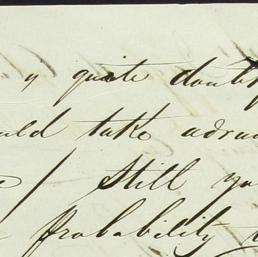 quite doubt
ould take advan
Still yo
Probability